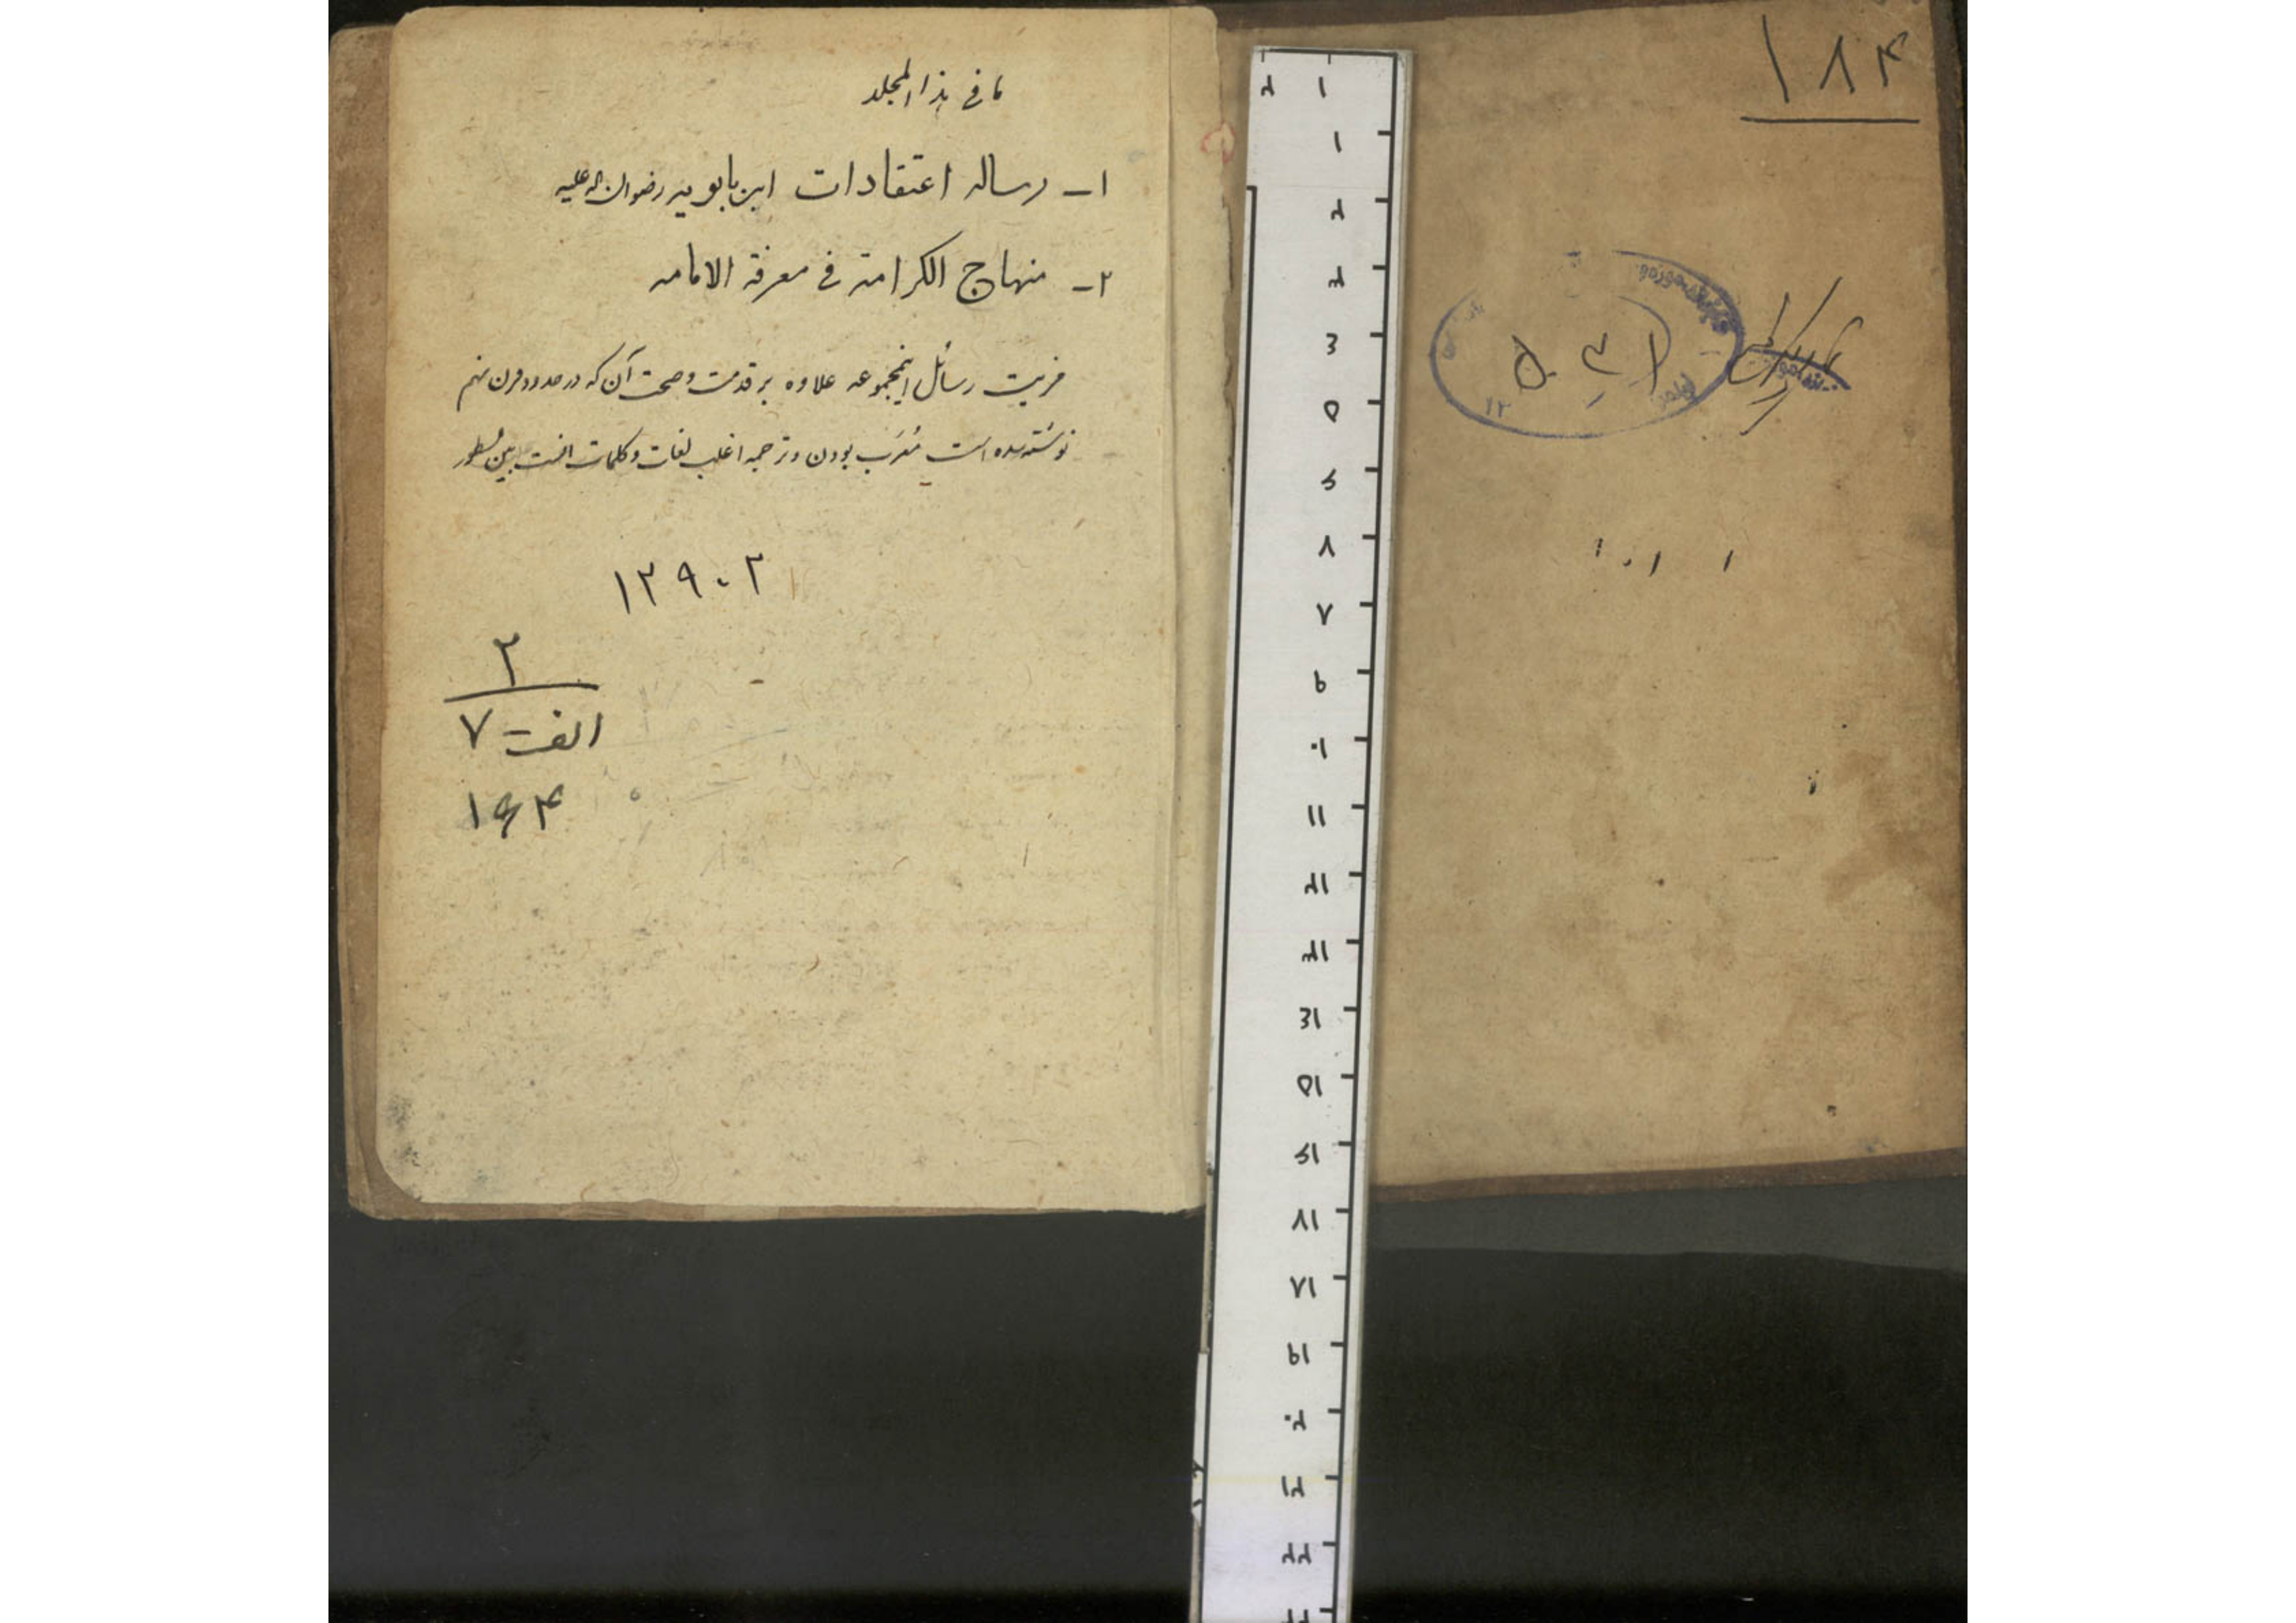 ۱۸۴
ما فی هذا المجلد
۱- رساله اعتقادات ابن بابویه رضوان اله علیه
۲- منهاج الکرامة فی معرفة الامامه
مزیت رسائل اینمجموعه علاوه بر قدمت و صحت آن که در حدود قرن نهم
نوشته شده است مُعرَب بودن و ترجمه اغلب لغات و کلمات است بین سطور
۱۲۹۰۲
۲
الف - ۷
۱۶۴